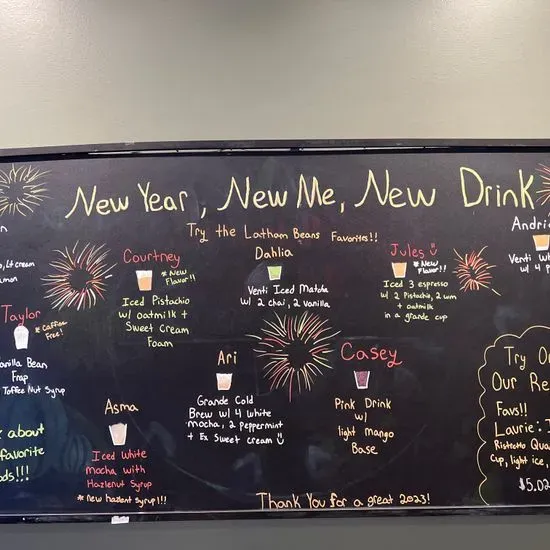 New Year, New Me, New Drink
Try the Latham Beans Favorites!!
Courtney
* New Flavor!!
Iced Pistachio
w/ oatmilk +
Sweet Cream
Foam
Dahlia
Venti Iced Matcha
w/ 2 chai, 2 vanilla
Jules
* New
Flavor!!
Iced 3 espresso
w/ 2 Pistachio,
+ oatmilk
in a grande cup
Andri
Venti W
w/ 4 P
, Lt cream
Taylor
* Caffine
Free!
anilla Bean
Frap
Toffee Nut Syrup
Ari
Grande Cold
Brew w/ 4 white
mocha, 2 peppermint
+ Ex Sweet cream
Casey
Pink Drink
w/
light mango
Base
Asma
Iced White
mocha with
Hazlenut Syrup
* new hazlent syrup!!
about
favorite
ds!!!
Try O
Our Re
Favs!!
Laurie: I
Ristretto Qua
Cup, light ice,
$5.02
Thank You for a great 2023!